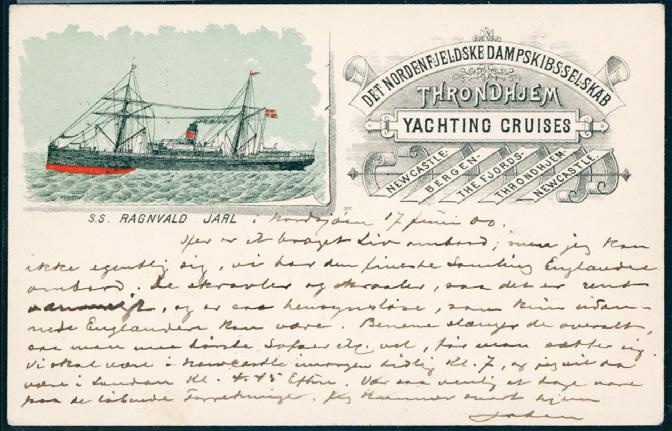 DET NORDENFJELDSKE DAMPSKIBSSELSKAB
THRONDHJEM
YACHTING CRUISES
NEWCASTLE-
BERGEN-
THE FJORDS-
THRONDHJEM-
NEWCASTLE.
S.S. RAGNVALD JARL i Nordsjøen 17 Juni 00.
Her er et broget Liv ombord; men jeg kan
ikke egentlig sig, vi har den fineste Samling Englændere
ombord. De skravler og skraaler, saa det er rent
og er saa hensynsløse, som kun
Englændere kan være. Benene slænger de overalt,
saa man maa børste Sofaer etc. vel, før man sætter sig.
Vi skal være i Newcastle imorgen tidlig Kl. 7, og jeg vil da
være i London Kl. 4.45 Efterm. Vær saa venlig at tage vare
paa de løbende Forretninger. Jeg kommer snart hjem